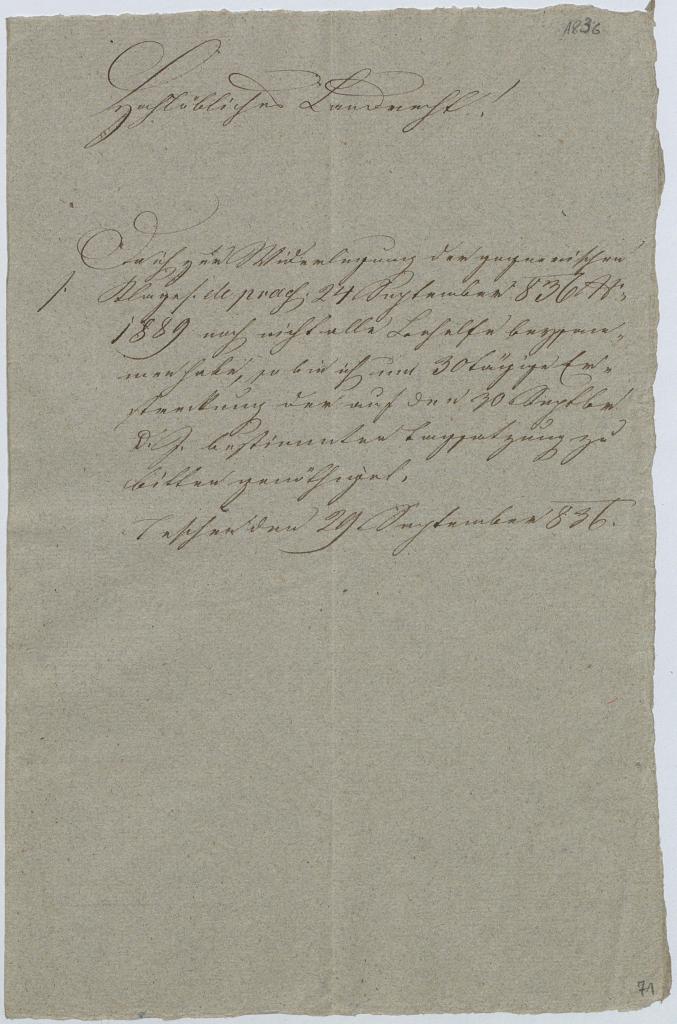 1836
Hochlöbliches Landrecht!
Da ich zur Widerlegung der gegnerischen
/. Klage /: de praes. 24 September 836 N:
1889 noch nicht alle Behelfe beysam¬
men habe, so bin ich um 30tägige Er¬
streckung der auf den 30 Septbr
d. J. bestimmten Tagsatzung zu
bitten genöthiget.
Teschen den 29 September 836.
71